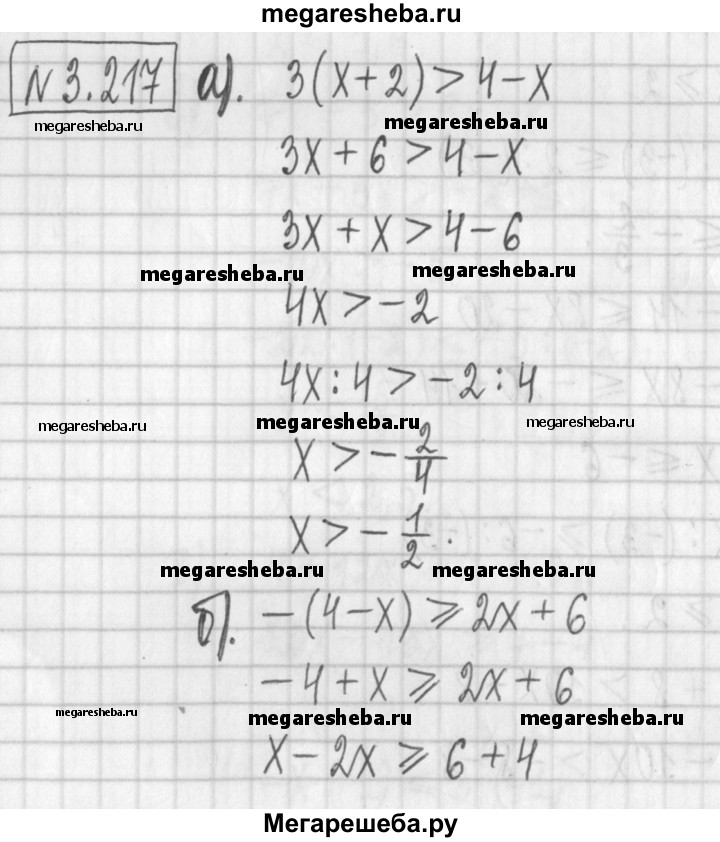 megaresheba.ru
N 3.217 а). 3(x+2)>4-x
megaresheba.ru megaresheba.ru
3x+6>4-x
3x+x>4-6
megaresheba.ru megaresheba.ru
4x>-2
4x:4>-2:4
megaresheba.ru megaresheba.ru megaresheba.ru
x>-2/4
x>-1/2.
megaresheba.ru megaresheba.ru
б). -(4-x)⩾2x+6
-4+x⩾2x+6
megaresheba.ru megaresheba.ru megaresheba.ru
x-2x⩾6+4
Мегарешеба.ру